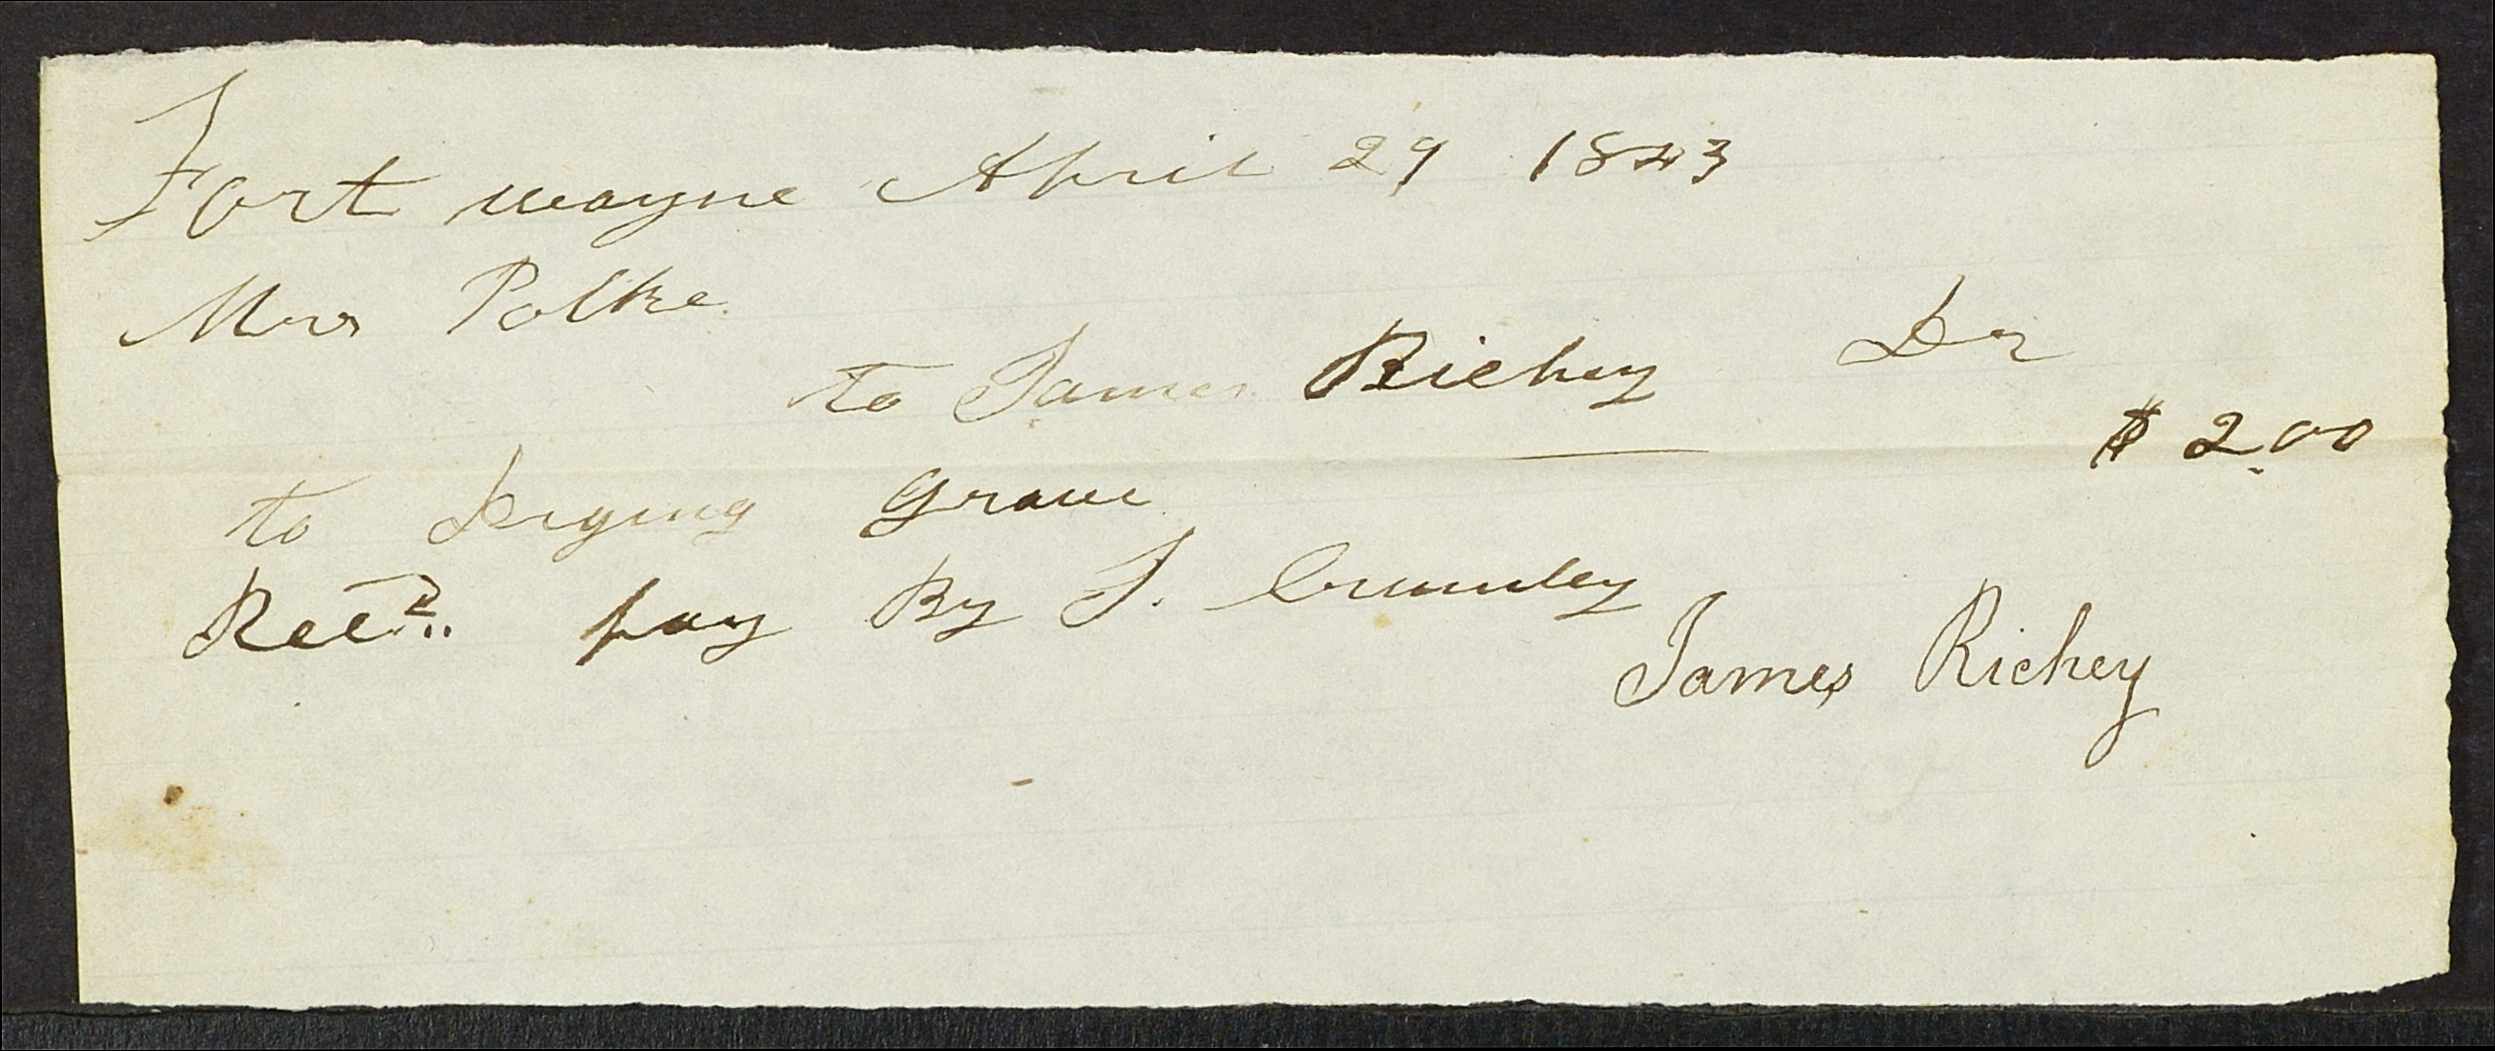 Fort wayne April 29 1843
Mrs Polke
to James Richey Dr
$ 2.00
to Diging grave
Recd pay By T. Crumley
James Richey